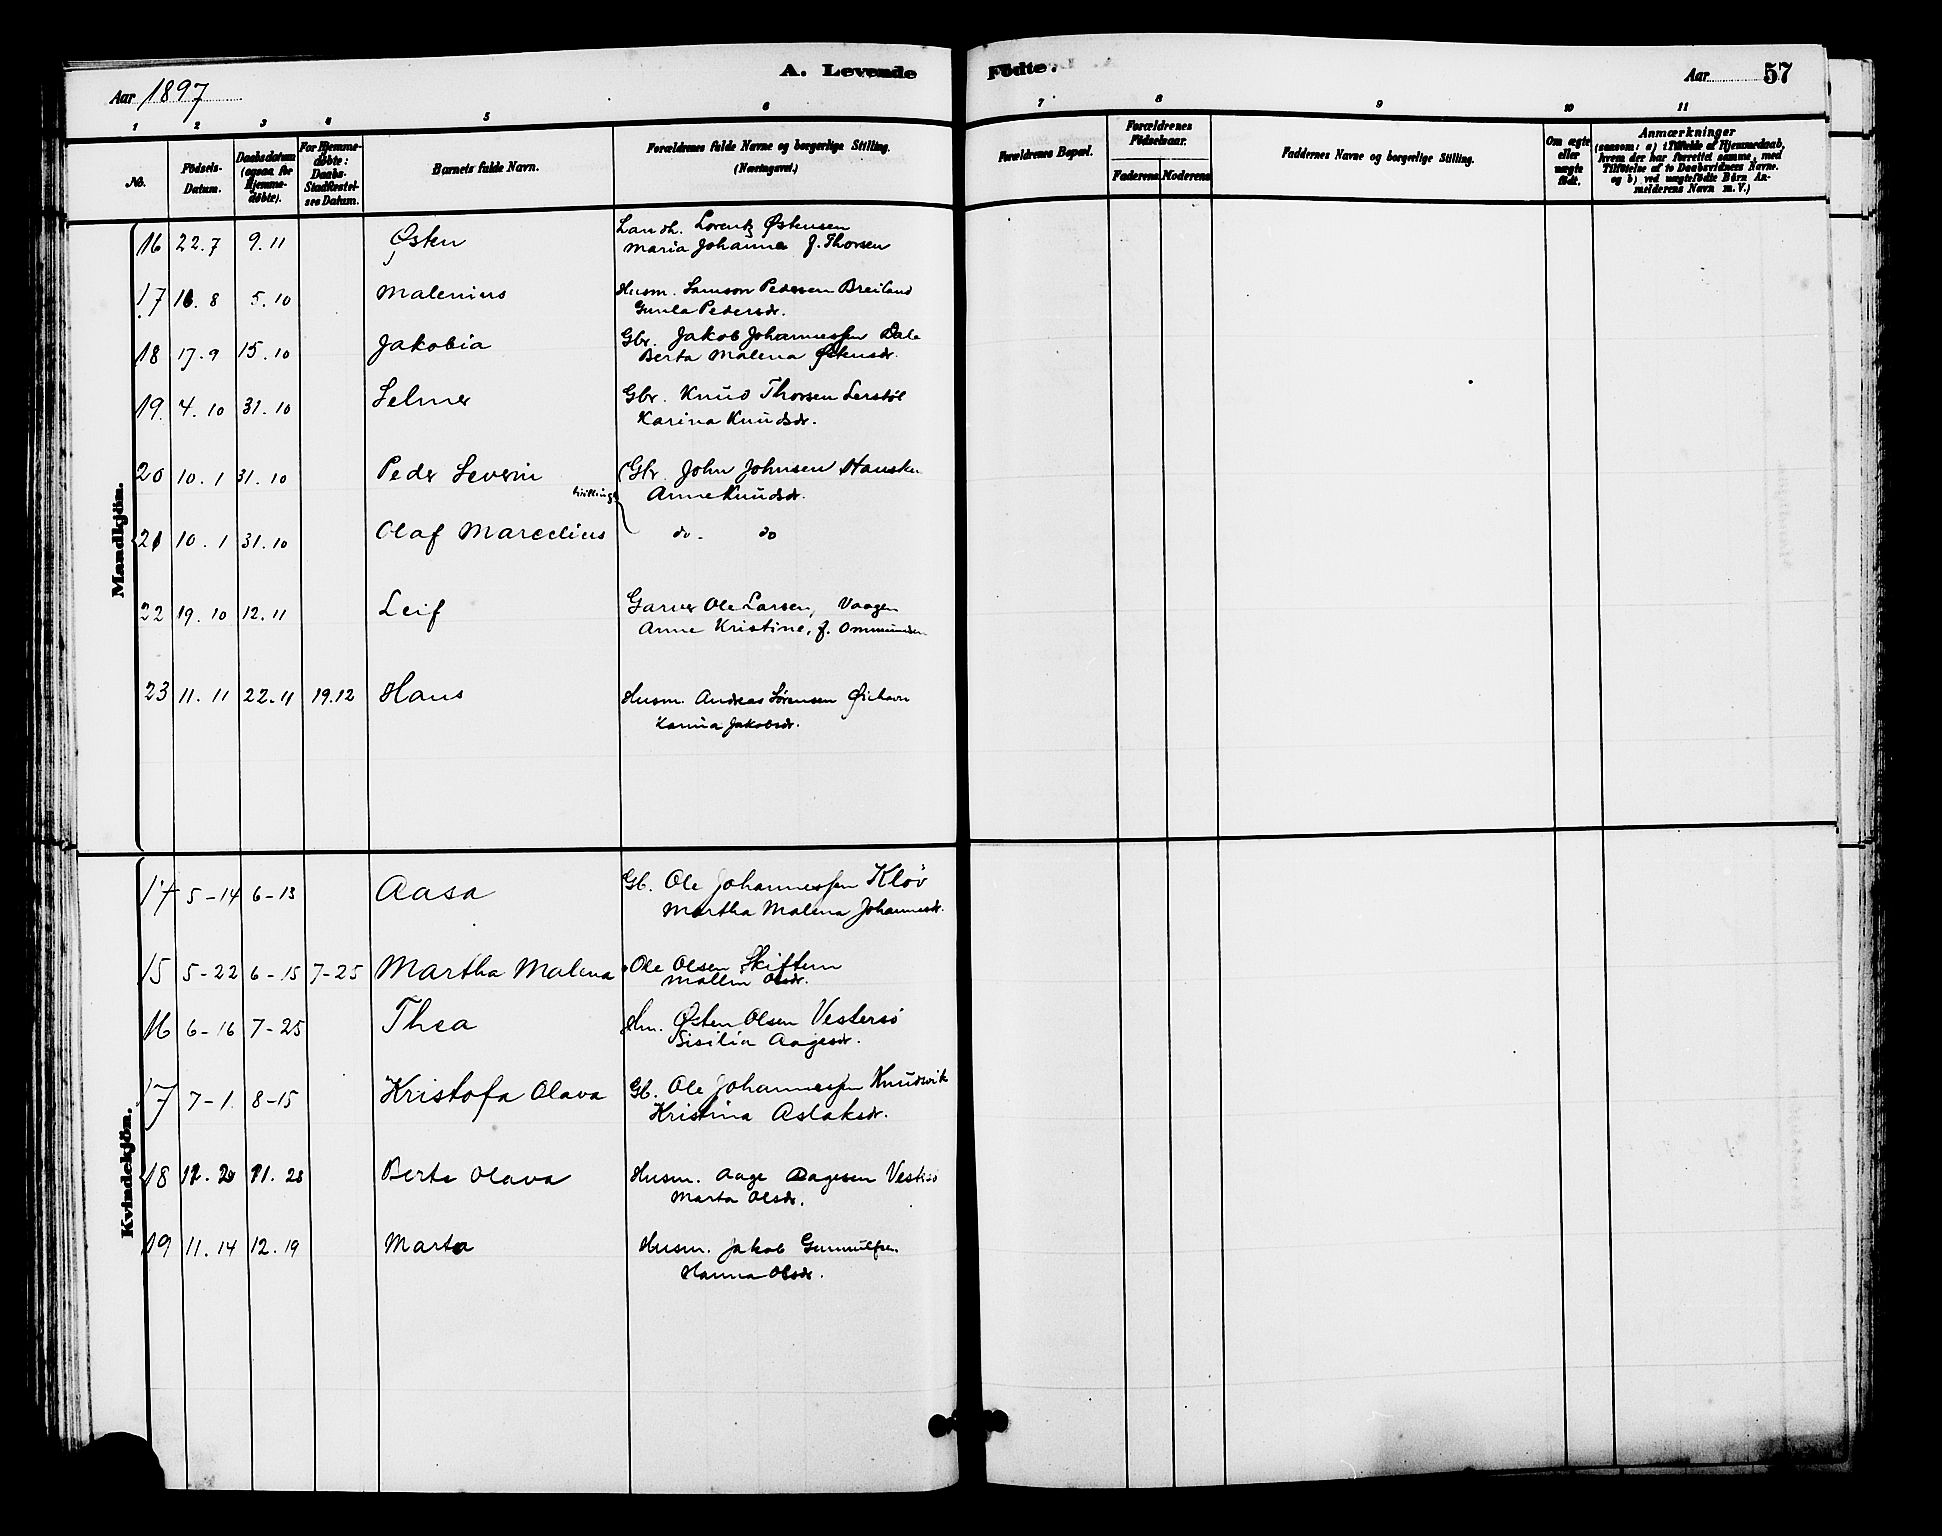 A. Levende Födte.
Aar 1897
Aar 57
1 2 3 4 5 6 7 8 9 10 11
No.
Födsels-Datum.
Daabsdatum (ogsaa for Hjemmedøbte).
For Hjemmedøbte: Daabs-Stadfæstelses Datum.
Barnets fulde Navn.
Forældrenes fulde Navne og borgerlige Stilling. (Næringsvei.)
Forældrenes Bopæl.
Forældrenes Födselsaar.
Faderens. Moderens.
Faddernes Navne og borgerlige Stilling.
Om ægte eller uægte født.
Anmærkninger
(saasom: a) i Tilfælde af Hjemmedaab, hvem der har forrettet samme, med Tilføielse af to Daabsvidners Navne. og b) ved uægtefödte Börn Anmelderens Navn m. V.)
Mandkjön.
16 22.7 9.11 Østen Landh. Lorentz Østensen
Maria Johanne f. Thorsen
17 16.8 5.10 Malenius Husm. Samson Pedersen Breiland
Gunla Pedersdr.
18 17.9 15.10 Jakobia Gbr. Jakob Johannessen Dale
Berta Malena Østensdr.
19. 4.10 31.10 Selmer Gbr. Knud Thorsen Lerstøl
Karina Knudsdr.
20 10.1 31.10 Peder Severin Gbr. John Johnsen
Anne Knudsdr.
21 10.1 31.10 Olaf Marcelius do. do
22 19.10 12.11 Leif Garver Ole Larsen, Vaagen
Anne Kristine, f. Ommundsen
23 11.11 22.11 19.12 Hans Husm. Andreas Sørensen
Jakobsdr.
Kvindekjön.
17 5-14 6-13 Aasa Gb. Ole Johannessen Kløv
Martha Malena Johannesdr.
15 5-22 6-15 7-25 Martha Malena Ole Olsen Skiftun
Mallin Olsdr.
16 6-16 7-25 Thea Hm. Østen Olsen Vestersø
Sisilia Aagesdr.
17 7-1 8-15 Kristofa Olava Gb. Ole Johannessen Knudsvik
Kristina Aslaksdr.
18 11.28 Berte Olava Husm. Aage Aagesen
Marta Olsdr.
19 11.14 12.19 Marta Husm. Jakob Gunnulfsen
Hanna Olsdr.